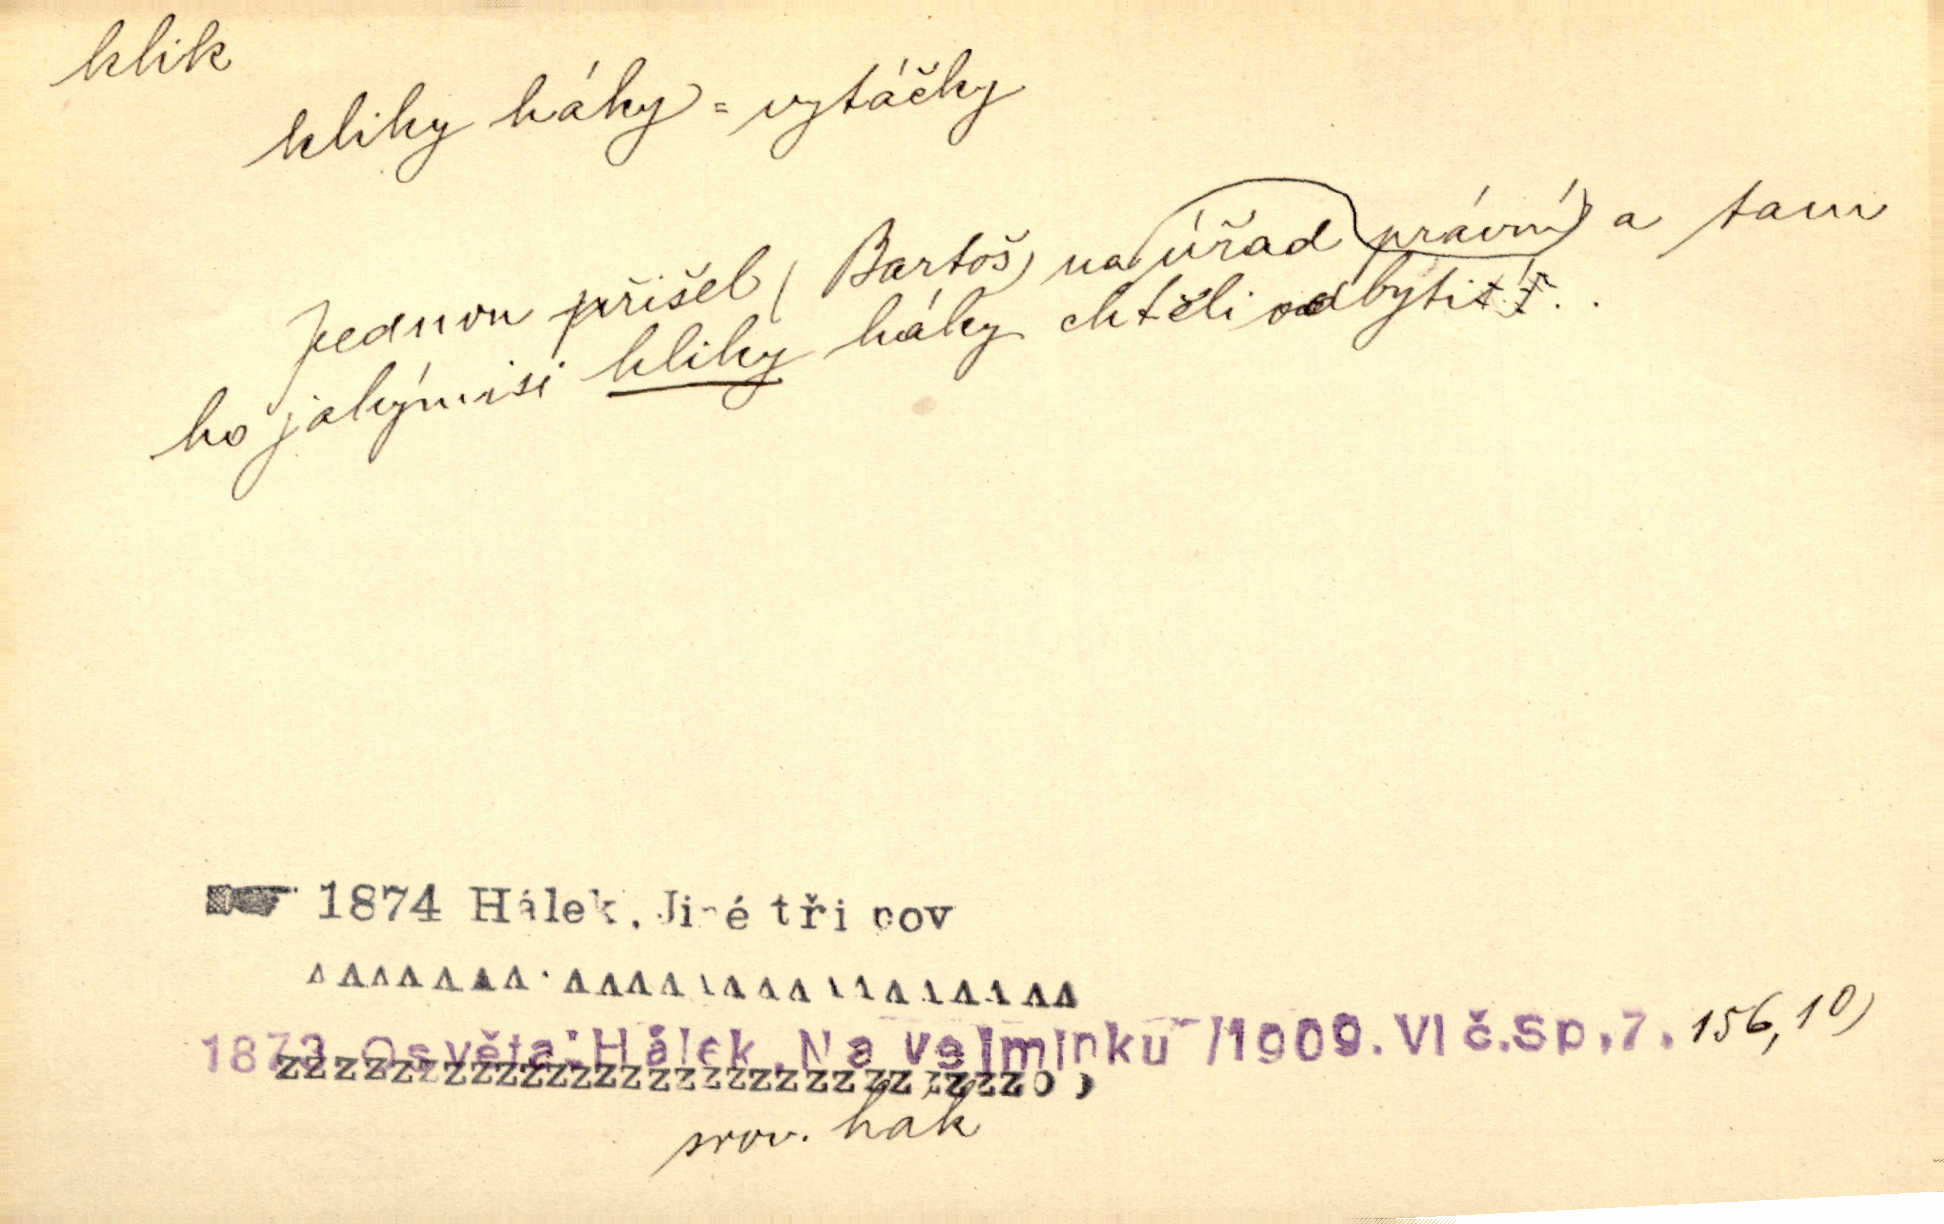 klik
kliky háky = vytáčky
Jednou přišel (Bartoš) na úřad právní a tam
ho jakýmisi kliky háky chtěli odbýti
☛ 1874 Hálek. Jiné tři pov
1873 Osvěta: Hálek. Na Vejminku /1909. VI č. Sp. 7. 156, 10)
zzzzzzzzzzzzzzzzzzzzzzzzzzzz
srov. hák